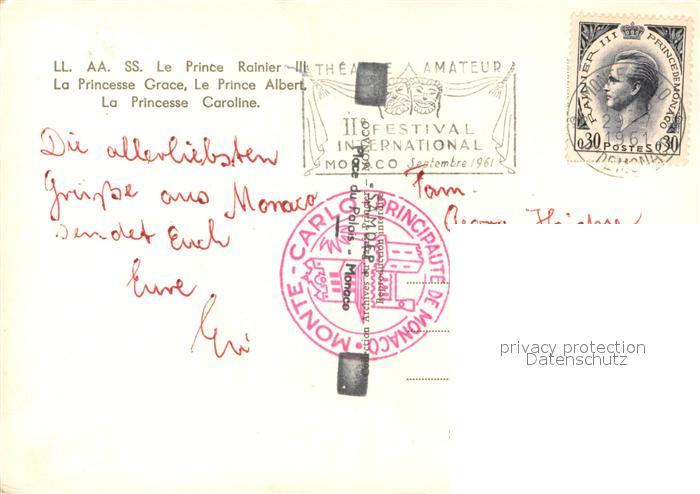 LL. AA. SS. Le Prince Rainier III
La Princesse Grace, Le Prince Albert,
La Princesse Caroline.
THÉATRE AMATEUR
IIe FESTIVAL
INTERNATIONAL
MONACO Septembre 1961
RAINIER III PRINCE DE MONACO
0,30 POSTES 0,30
1961
Die allerliebsten
Grüße aus Monaco
sendet Euch
Eure
Evi
Fam.
MONTE-CARLO PRINCIPAUTÉ DE MONACO
- SAMDEP -
Place du Palais - Monaco
Collection Archives du Palais Princier - MONACO
Reproduction interdite
privacy protection
Datenschutz